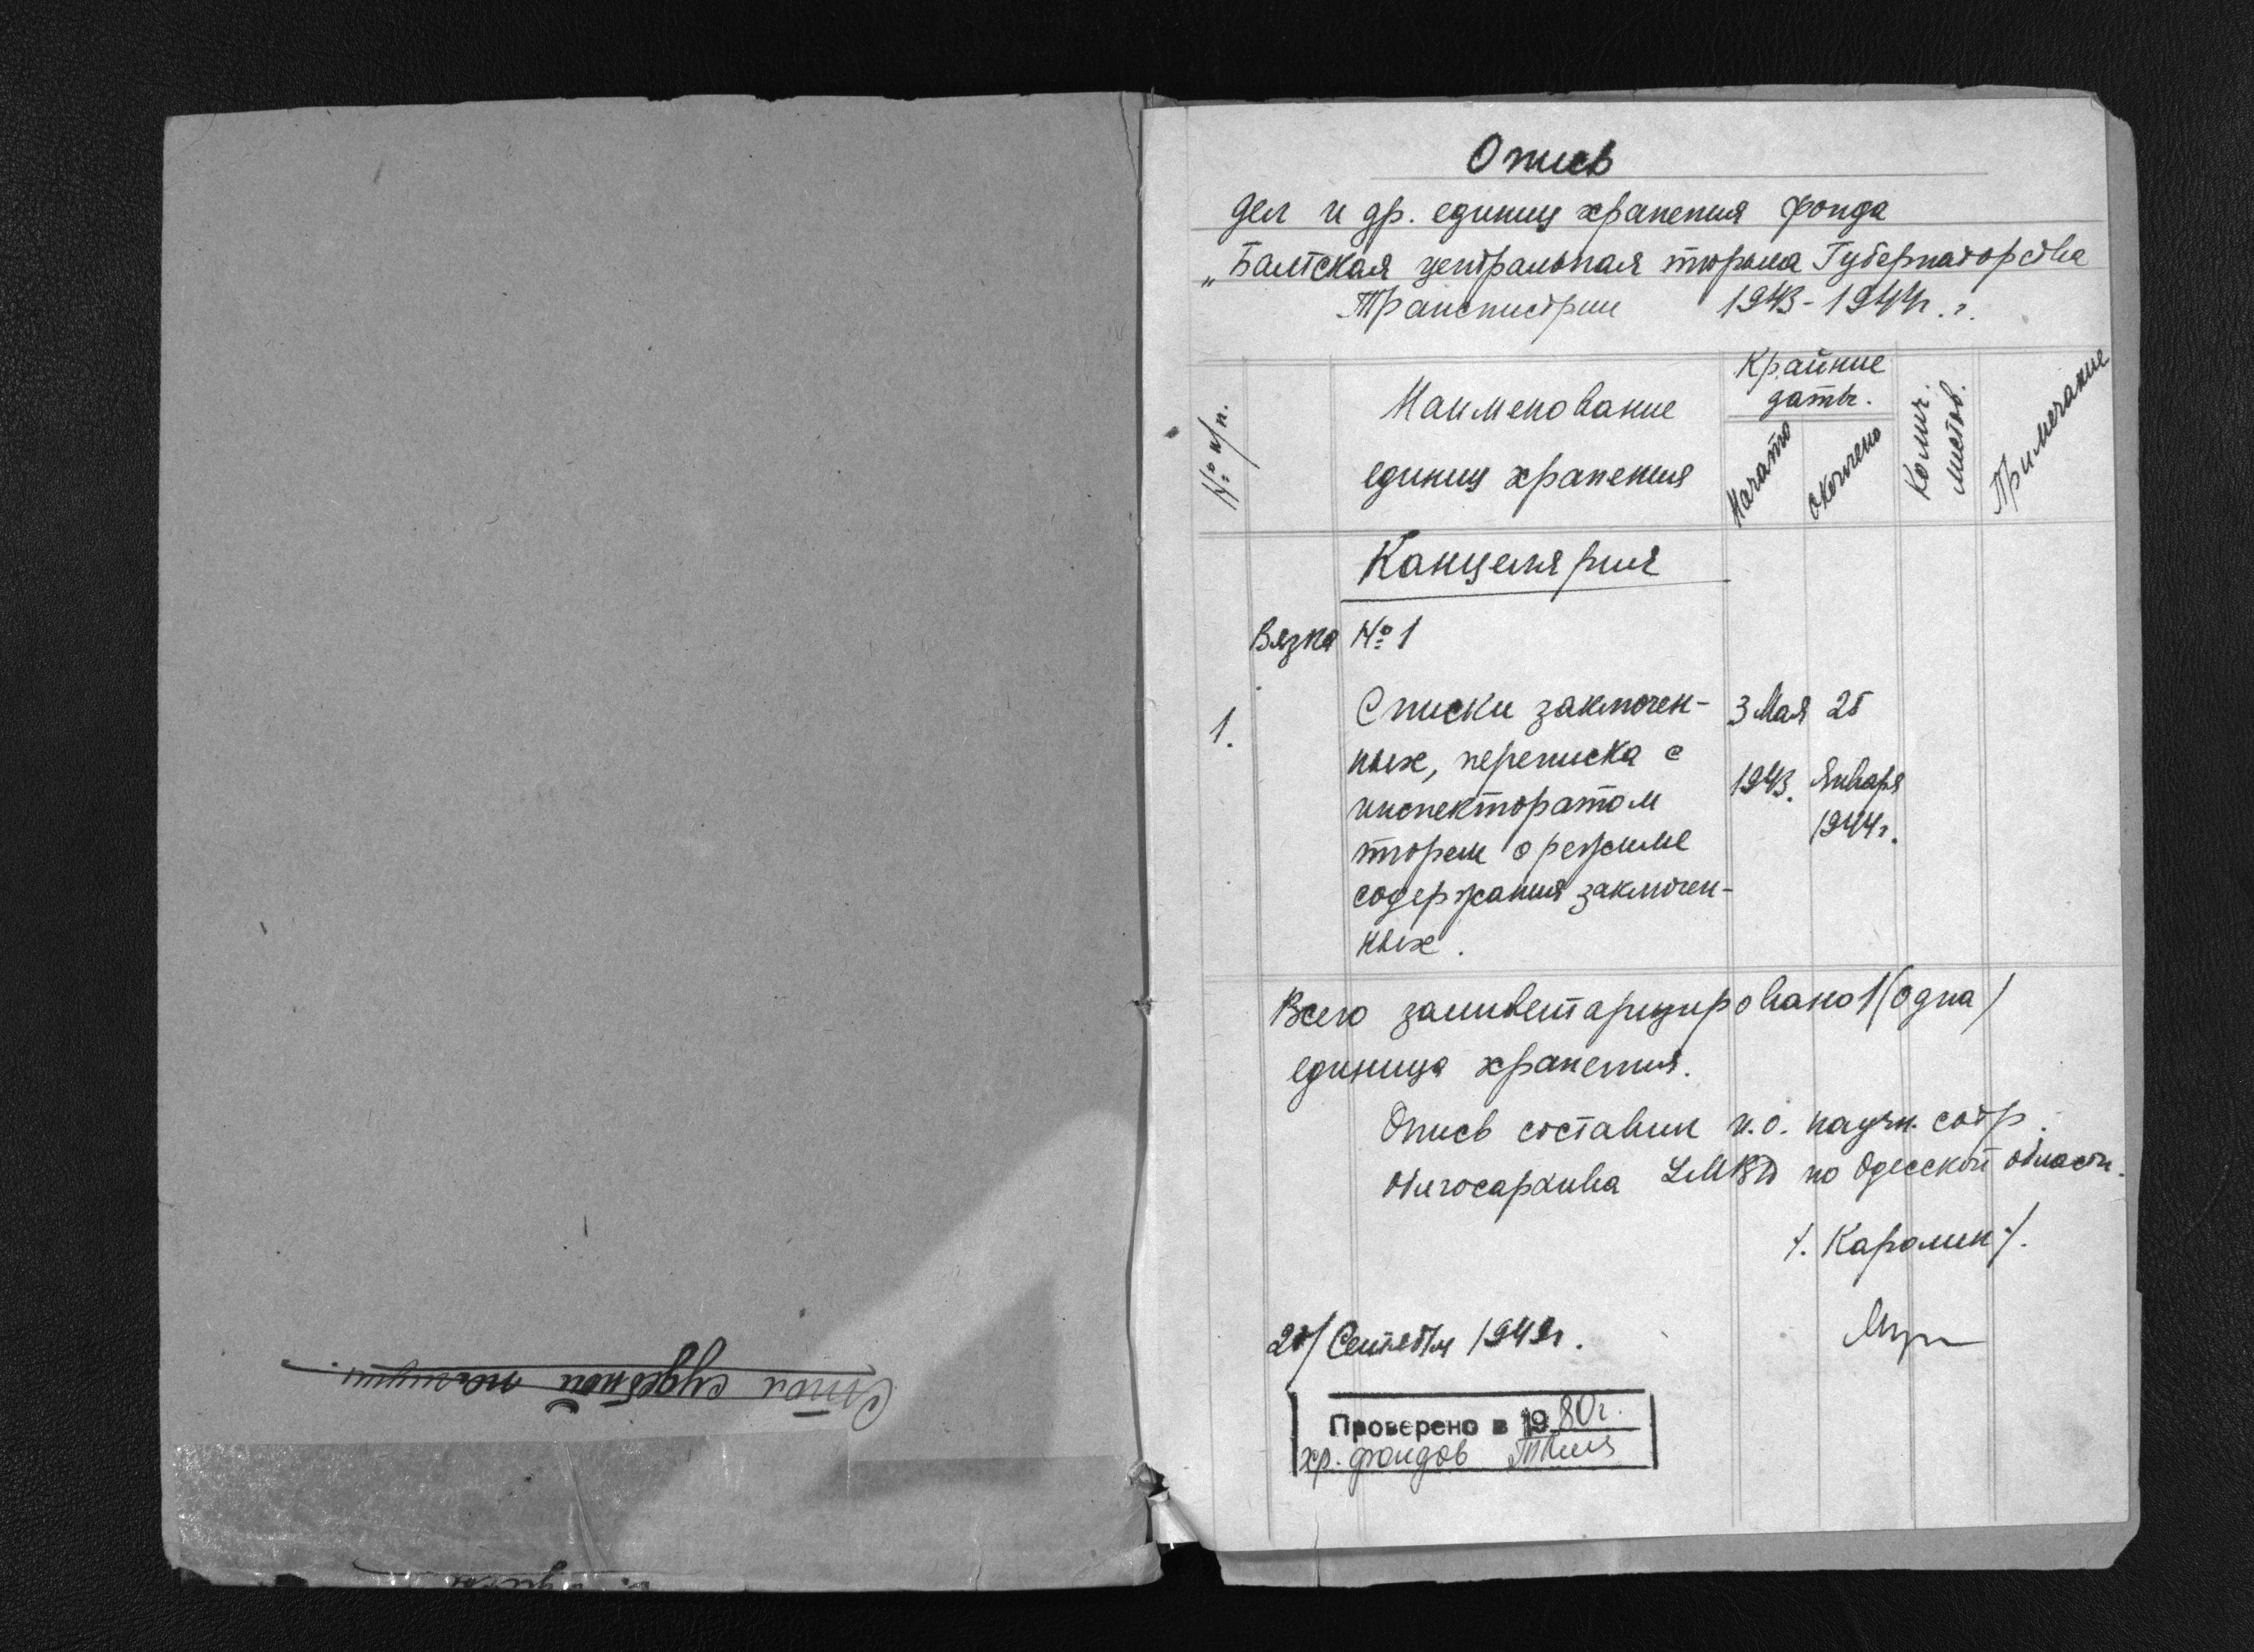 Опись
дел и др. единиц хранения фонда
„Балтская центральная тюрьма Губернаторства
Транснистрии 1943-1944г.г.
№ п/п.
Наименование
единиц хранения
Крайние
даты.
Начато
Окончено
Колич.
листов.
Примечание
Канцелярия
Вязка № 1
1.
Списки заключен-
ных, переписка с
инспекторатом
тюрем о режиме
содержания заключен-
ных.
3 Мая
1943.
25
Января
1944г.
Всего заинвентаризировано 1 (одна)
единица хранения.
Опись составил и.о. научн. сотр.
Облгосархива УМВД по Одесской области.
/. Каролик /.
Сентября 194 г.
Проверено в 1980г.
хр. фондов
Стол судебной